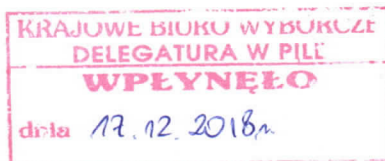 KRAJOWE BIURO WYBORCZE
DELEGATURA W PILE
WPŁYNĘŁO
dnia 17.12.2018r.